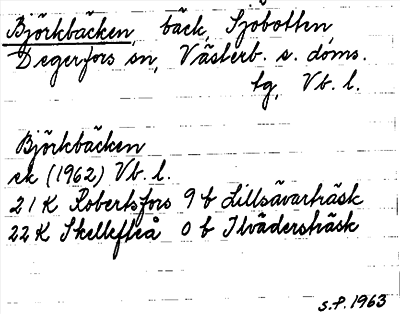 Björkbäcken, bäck, Sjöbotten
Degerfors sn, Västerb. s. doms.
tg, Vb. l.
Björkbäcken
ek (1962) Vb. l.
21 K Robertsfors 9 b Lillsävarträsk
22 K Skellefteå 0 b Ilvädersträsk
S.P. 1963